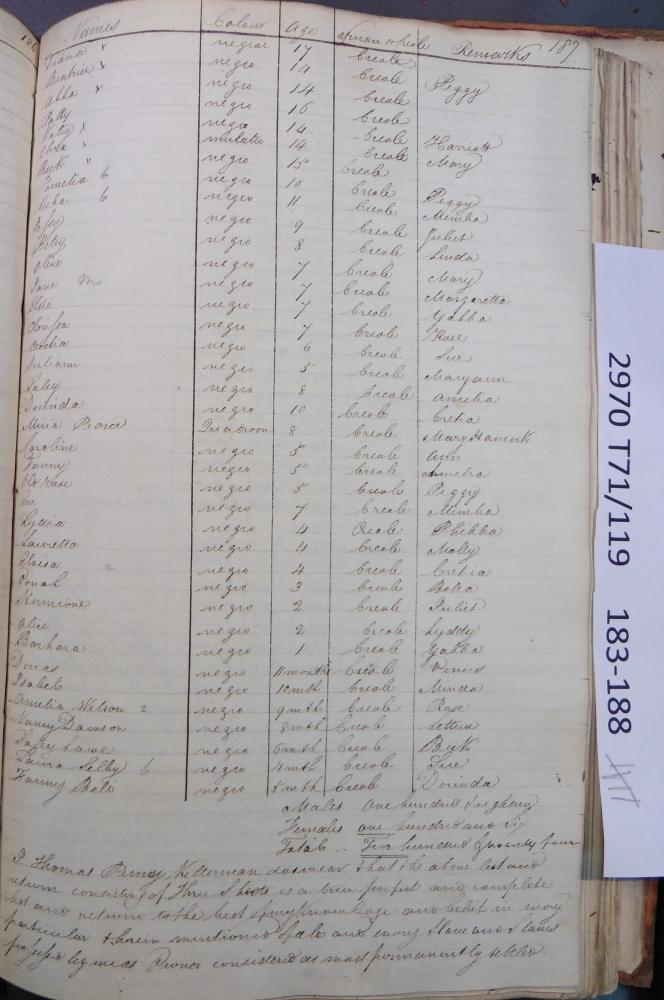 186
Names Colour Age African or Creole Remarks 187
Diana x negro 17 Creole
Beatrice x negro 14 Creole Peggy
Abba x negro 14 Creole
Patty negro 16 Creole
Katy x negro 14 Creole Harriott
mulatto 14 Creole Mary
Beck negro 15 Creole
Pamelia 6 negro 10 Creole Peggy
Juba 6 negro 11 Creole Mimba
negro 9 Creole Juliet
Hetty negro 8 Creole Linda
Olive negro 7 Creole Mary
Jane m negro 7 Creole Margaretta
Rose negro 7 Creole Yabba
Clarissa negro 7 Creole Rose
Cecelia negro 6 Creole Sue
Juliann negro 5 Creole Maryann
negro 8 Creole Amelia
Dorinda negro 10 Creole Cretia
Maria Pearce Quatroon 8 Creole Mary
Caroline negro 5 Creole Ann
Fanny negro 5 Creole Amelia
Old Rose negro 5 Creole Peggy
Sue negro 7 Creole Mimba
Lydia negro 4 Creole Phibba
Lauretta negro 4 Creole Molly
Eloisa negro 4 Creole Cretia
Dorah negro 3 Creole
Hermione negro 2 Creole Juliet
Alice negro 2 Creole Lyddy
Barbara negro 1 Creole Yabba
Dorcas negro 11 months Creole Venus
Isabel negro 10 mth Creole
Amelia Wilson 2 negro 9 mth Creole Rose
Nancy Dawson negro 8 mth Creole Lettice
negro 6 mth Creole Beck
Laura Selby 6 negro 4 mth Creole Sue
Fanny Bell negro 5 mth Creole Dorinda
Males one hundred & eighteen
Females one hundred and six
Total .. Two hundred & twenty four
I Thomas Kellerman do swear that the above list and
return consisting of Three Sheets is a true perfect and complete
list and return to the best of my knowledge and belief in every
particular therein mentioned of all and every Slave and Slaves
possessed by me as Owner considered as most permanently settled
2970 T71/119 183-188